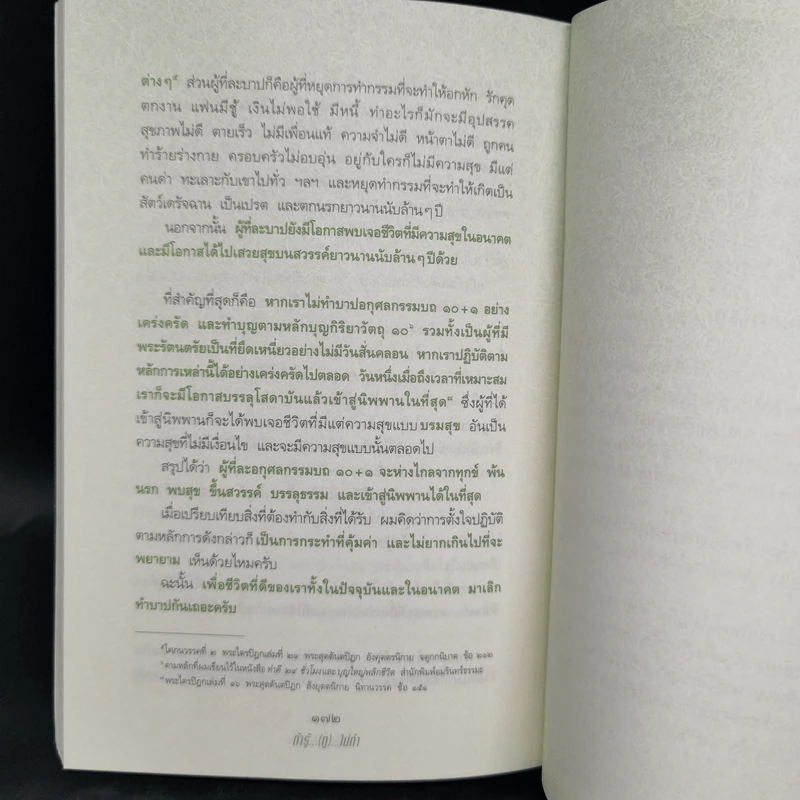 ต่างๆ⁴ ส่วนผู้ที่ละบาปก็คือผู้ที่หยุดการทำกรรมที่จะทำให้อกหัก รักคุด
ตกงาน แฟนมีชู้ เงินไม่พอใช้ มีหนี้ ทำอะไรก็มักจะมีอุปสรรค
สุขภาพไม่ดี ตายเร็ว ไม่มีเพื่อนแท้ ความจำไม่ดี หน้าตาไม่ดี ถูกคน
ทำร้ายร่างกาย ครอบครัวไม่อบอุ่น อยู่กับใครก็ไม่มีความสุข มีแต่
คนด่า ทะเลาะกับเขาไปทั่ว ฯลฯ และหยุดทำกรรมที่จะทำให้เกิดเป็น
สัตว์เดรัจฉาน เป็นเปรต และตกนรกยาวนานนับล้านๆ ปี
นอกจากนั้น ผู้ที่ละบาปยังมีโอกาสพบเจอชีวิตที่มีความสุขในอนาคต
และมีโอกาสได้ไปเสวยสุขบนสวรรค์ยาวนานนับล้านๆ ปีด้วย
ที่สำคัญที่สุดก็คือ หากเราไม่ทำบาปอกุศลกรรมบถ ๑๐+๑ อย่าง
เคร่งครัด และทำบุญตามหลักบุญกิริยาวัตถุ ๑๐ รวมทั้งเป็นผู้ที่มี
พระรัตนตรัยเป็นที่ยึดเหนี่ยวอย่างไม่มีวันสั่นคลอน หากเราปฏิบัติตาม
หลักการเหล่านี้ได้อย่างเคร่งครัดไปตลอด วันหนึ่งเมื่อถึงเวลาที่เหมาะสม
เราก็จะมีโอกาสบรรลุโสดาบันแล้วเข้าสู่นิพพานในที่สุด ซึ่งผู้ที่ได้
เข้าสู่นิพพานก็จะได้พบเจอชีวิตที่มีแต่ความสุขแบบ บรมสุข อันเป็น
ความสุขที่ไม่มีเงื่อนไข และจะมีความสุขแบบนั้นตลอดไป
สรุปได้ว่า ผู้ที่ละอกุศลกรรมบถ ๑๐+๑ จะห่างไกลจากทุกข์ พ้น
นรก พบสุข ขึ้นสวรรค์ บรรลุธรรม และเข้าสู่นิพพานได้ในที่สุด
เมื่อเปรียบเทียบสิ่งที่ต้องทำกับสิ่งที่ได้รับ ผมคิดว่าการตั้งใจปฏิบัติ
ตามหลักการดังกล่าวก็เป็นการกระทำที่คุ้มค่า และไม่ยากเกินไปที่จะ
พยายาม เห็นด้วยไหมครับ
ฉะนั้น เพื่อชีวิตที่ดีของเราทั้งในปัจจุบันและในอนาคต มาเลิก
ทำบาปกันเถอะครับ
โสภณวรรคที่ ๒ พระไตรปิฎกเล่มที่ ๒๑ พระสุตตันตปิฎก อังคุตตรนิกาย จตุกกนิบาต ข้อ ๒๑๒
ตามหลักที่ผมเขียนไว้ในหนังสือ ทำดี ๒๔ ชั่วโมง และ บุญใหญ่พลิกชีวิต สำนักพิมพ์อมรินทร์ธรรมะ
พระไตรปิฎกเล่มที่ ๑๖ พระสุตตันตปิฎก สังยุตตนิกาย นิทานวรรค ข้อ ๑๕๑
๑๗๒
ถ้ารู้...(กู)...ไม่ทำ